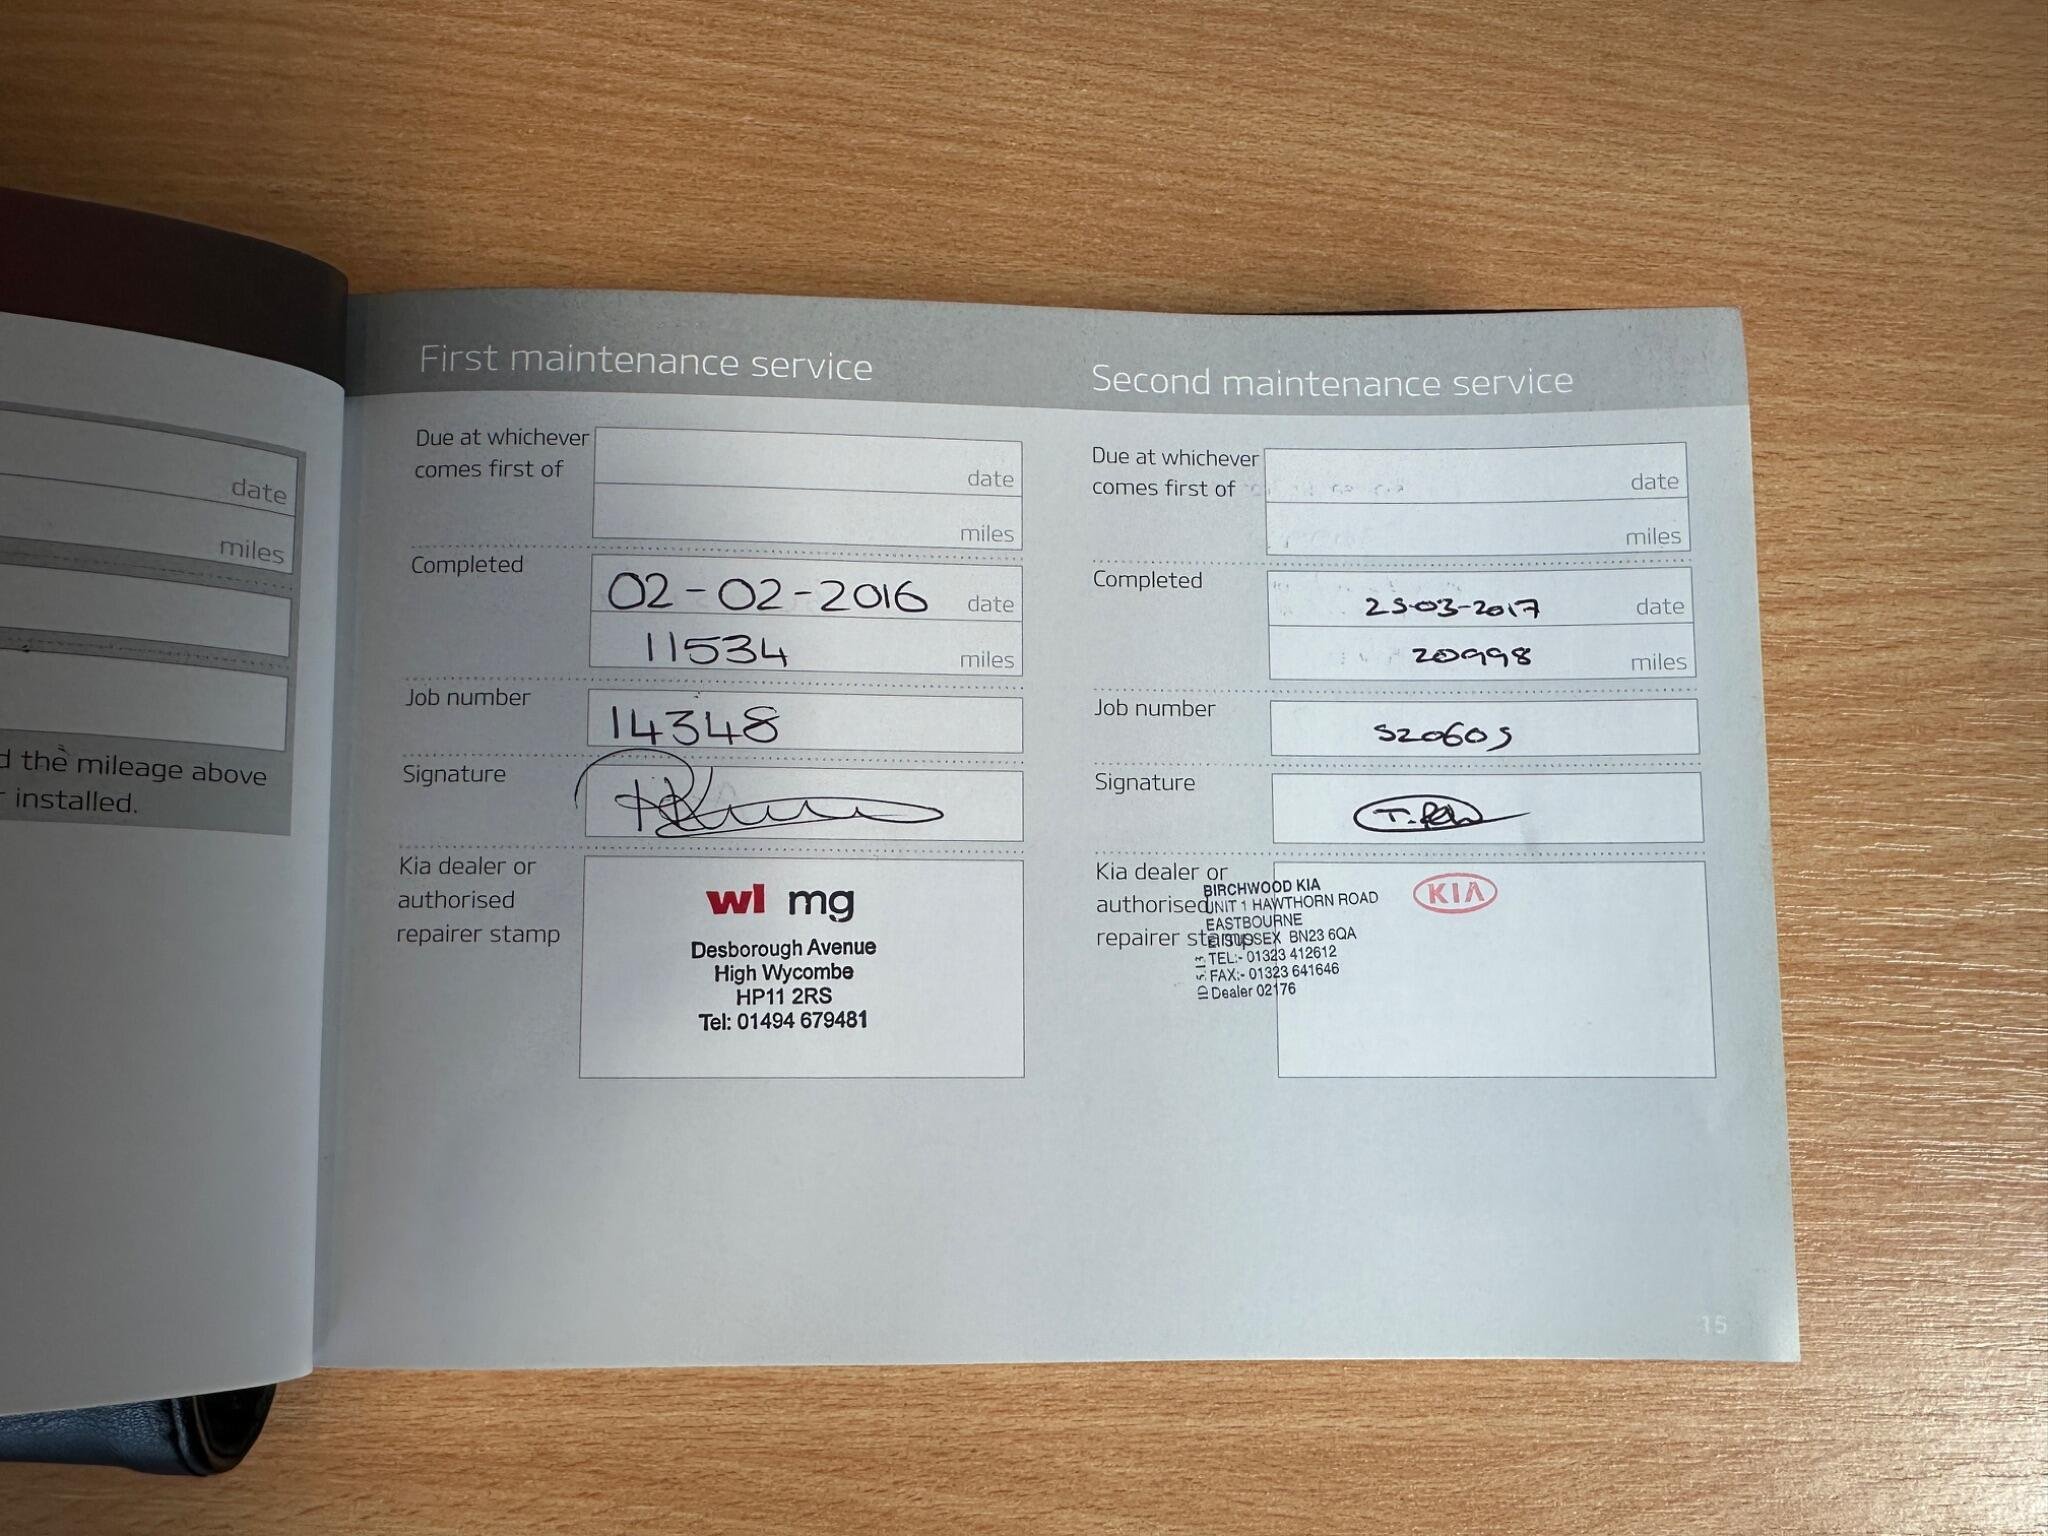 date
miles
d the mileage above
r installed.
First maintenance service
Due at whichever
comes first of
date
miles
Completed
02-02-2016 date
11534 miles
Job number
14348
Signature
Kia dealer or
authorised
repairer stamp
wl mg
Desborough Avenue
High Wycombe
HP11 2RS
Tel: 01494 679481
Second maintenance service
Due at whichever
comes first of
date
miles
Completed
25-03-2017 date
20998 miles
Job number
520605
Signature
Kia dealer or
authorised
repairer stamp
BIRCHWOOD KIA
UNIT 1 HAWTHORN ROAD
EASTBOURNE
SUSSEX BN23 6QA
TEL:- 01323 412612
FAX:- 01323 641646
Dealer 02176
KIA
15